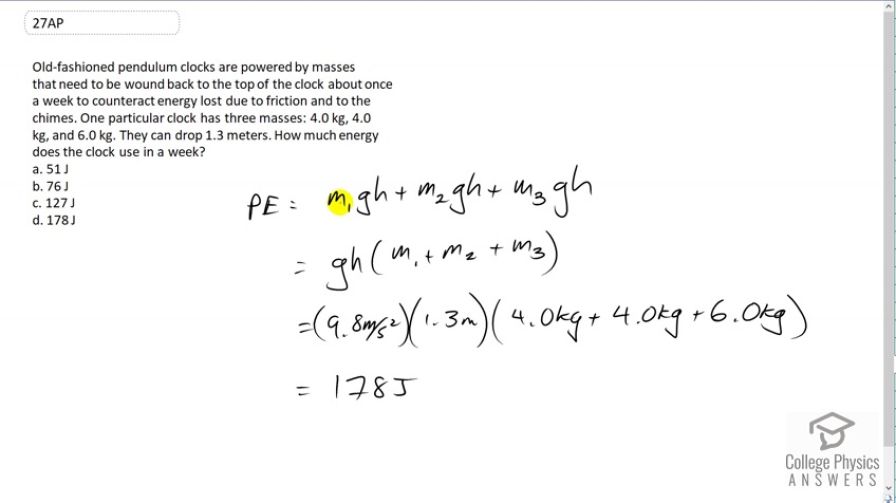 27AP
Old-fashioned pendulum clocks are powered by masses
that need to be wound back to the top of the clock about once
a week to counteract energy lost due to friction and to the
chimes. One particular clock has three masses: 4.0 kg, 4.0
kg, and 6.0 kg. They can drop 1.3 meters. How much energy
does the clock use in a week?
a. 51 J
b. 76 J
c. 127 J
d. 178 J
PE = m₁gh + m₂gh + m₃gh
= gh(m₁ + m₂ + m₃)
=(9.8m/s²)(1.3m)(4.0kg + 4.0kg + 6.0kg)
= 178J
College Physics
ANSWERS